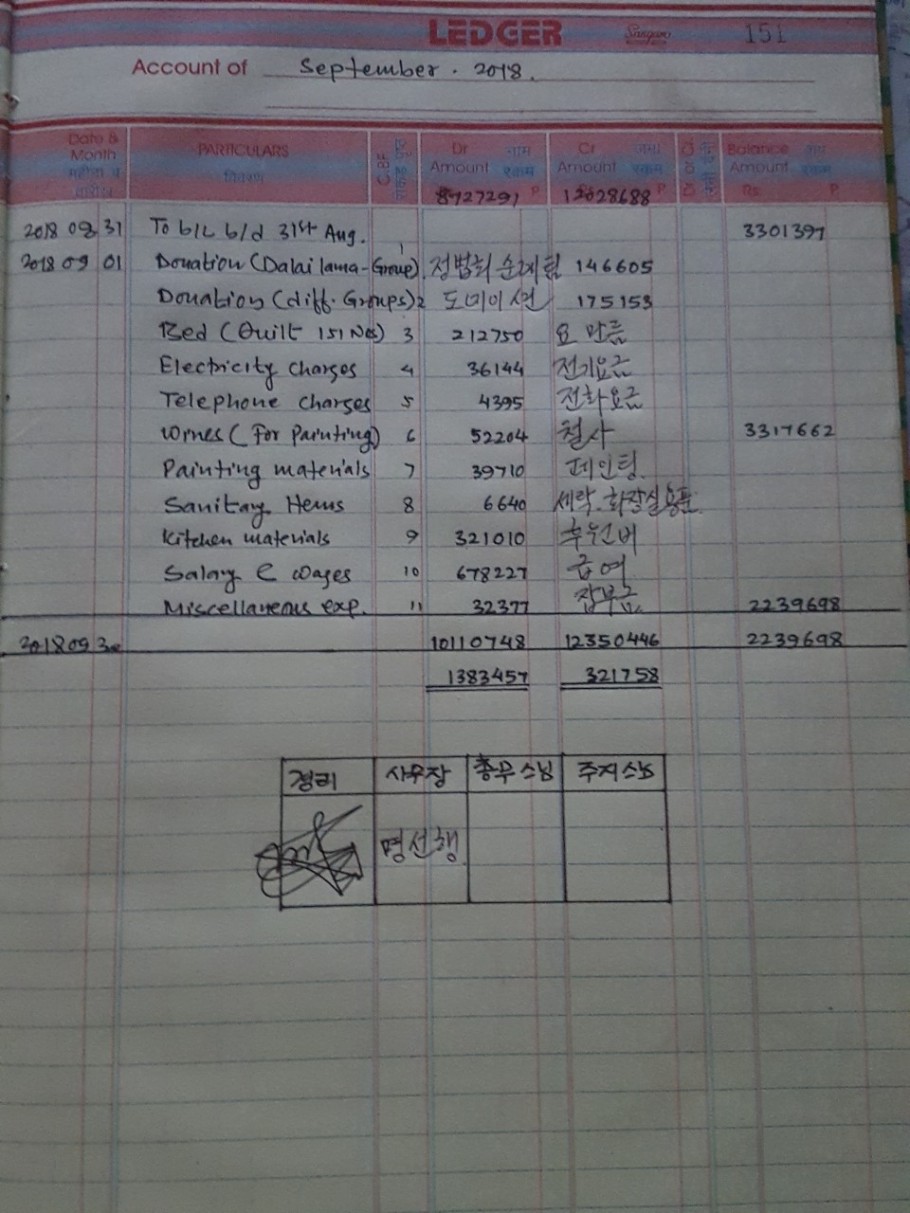 LEDGER Sangam 151
Account of September. 2018.
Date & Month PARTICULARS C.B.F Dr Amount नाम रकम Cr Amount जमा रकम Balance Amount रकम
विवरण 8727291 P 12028688 P Rs P
2018 08 31 To b/L b/d 31st Aug. 3301397
2018 09 01 Donation (Dalai lama-Group). 1 정범희 순례팀 146605
Donation (diff. Groups) 2 도네이션 175153
Bed (Quilt 151 Nos) 3 212750 요 만듬
Electricity Charges 4 36144 전기요금
Telephone charges 5 4395 전화요금
(For Painting) 6 52204 철사 3317662
Painting materials 7 39710 페인팅.
Sanitary Items 8 6640 세탁.화장실용품
Kitchen materials 9 321010 후원비
Salary & Wages 10 678227 급여
Miscellaneous exp. 11 32377 잡부금 2239698
2018 09 30 10110748 12350446 2239698
1383457 321758
경리 사무장 총무스님 주지스님
명선행